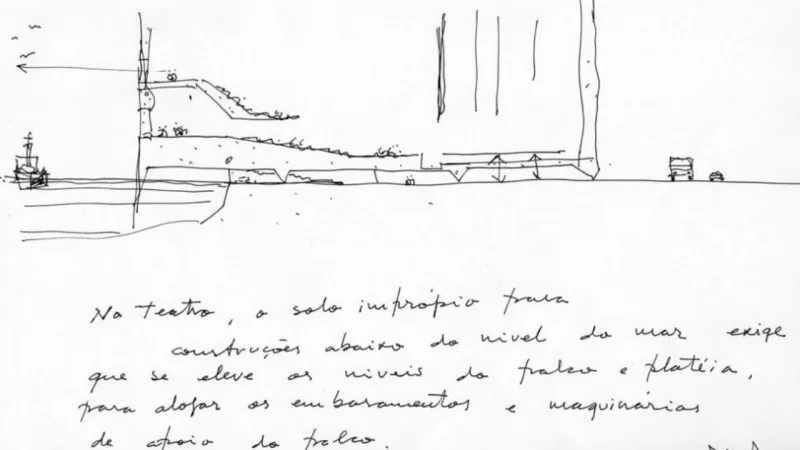 No teatro, o solo impróprio para
construções abaixo do nivel do mar exige
que se eleve os niveis do palco e platéia,
para alojar os embasamentos e maquinárias
de apoio do palco.